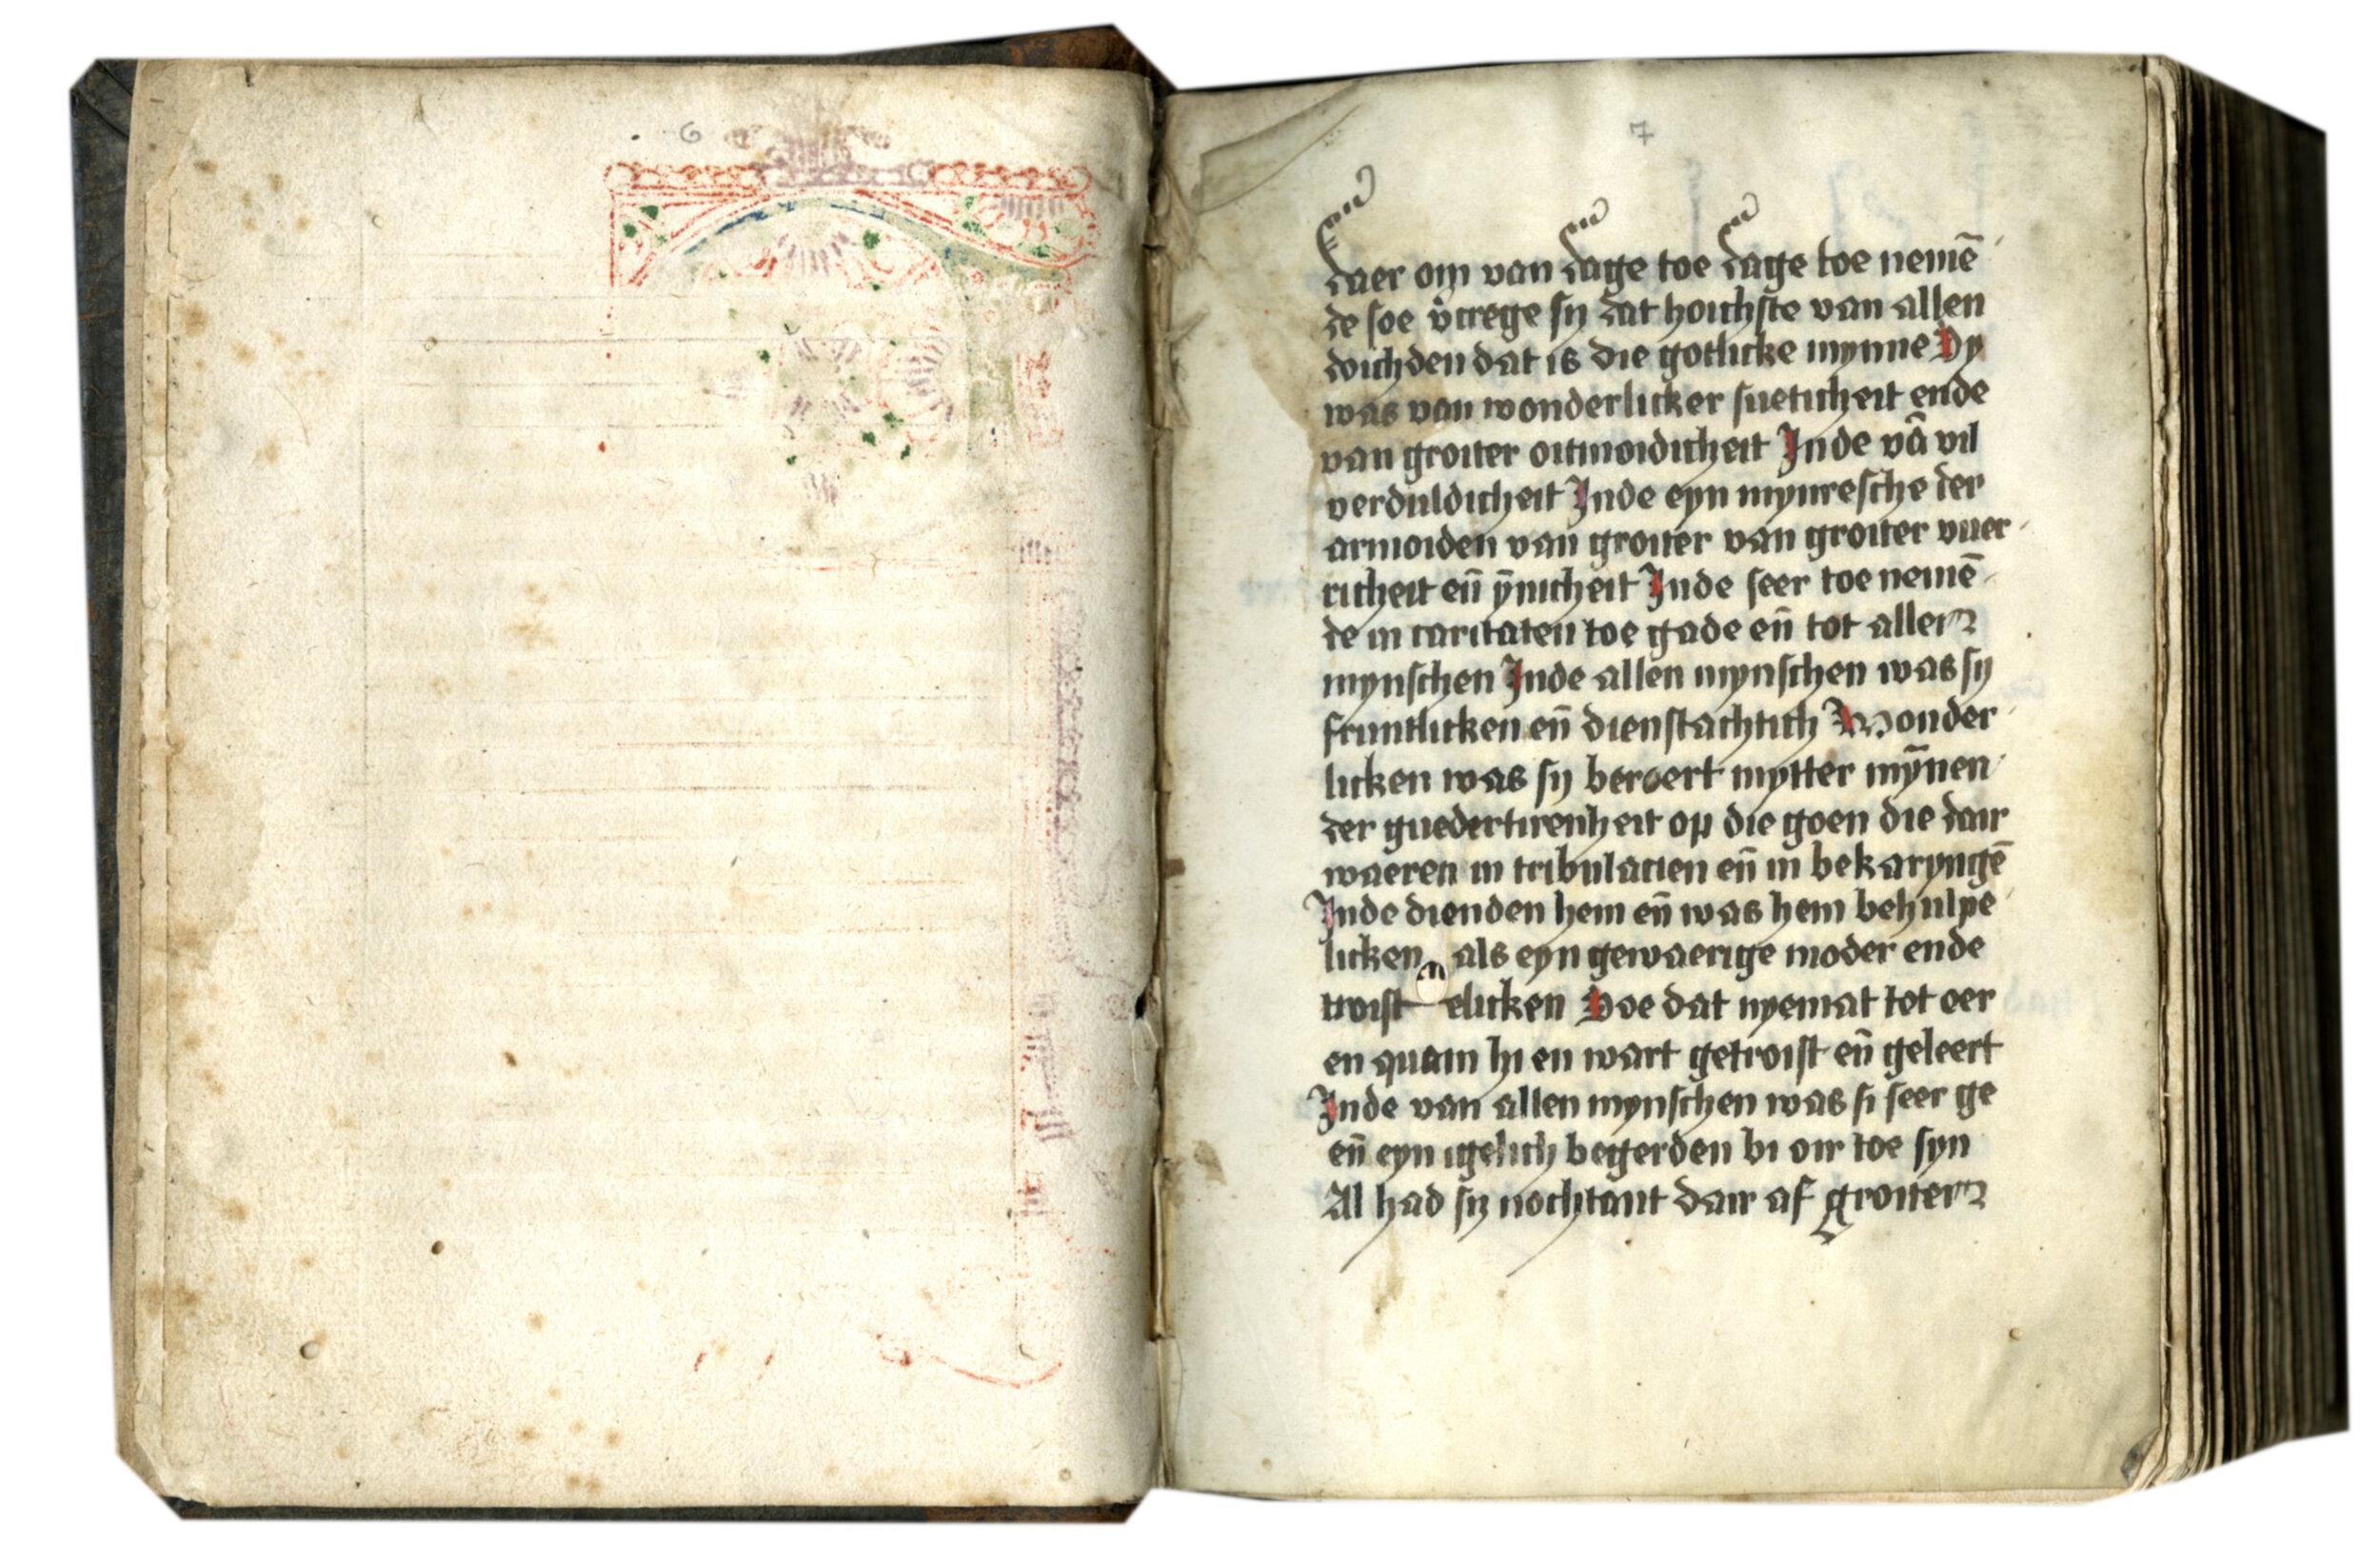 6
7
daer om van dage toe dage toe nemē
de soe v̊crege sy dat hoichste van allen
doichden dat is die gotlicke mynne Sy
was van wonderlicker sueticheit ende
van groiter oitmoidicheit Inde vā vil
verduldicheit Inde eyn mynresche der
armoiden van groiter van groiter vuer
richeit eñ ȳnicheit Inde seer toe nemē
de in caritaten toe gade eñ tot allen
mynschen Inde allen mynschen was sy
fruntlicken eñ dienstachtich Wonder
licken was sy beroert mytter mȳnen
der guedertirenheit op die goen die dair
waeren in tribulacien eñ in bekaryngē
Inde dienden hem eñ was hem behulpe
licken als eyn gewaerige moder ende
troist elicken Soe dat nyemat tot oer
en quam hi en wart getroist eñ geleert
Inde van allen mynschen was si seer ge
eñ eyn igelich begerden bi oir toe syn
Al had sy nochtant dair af groiter